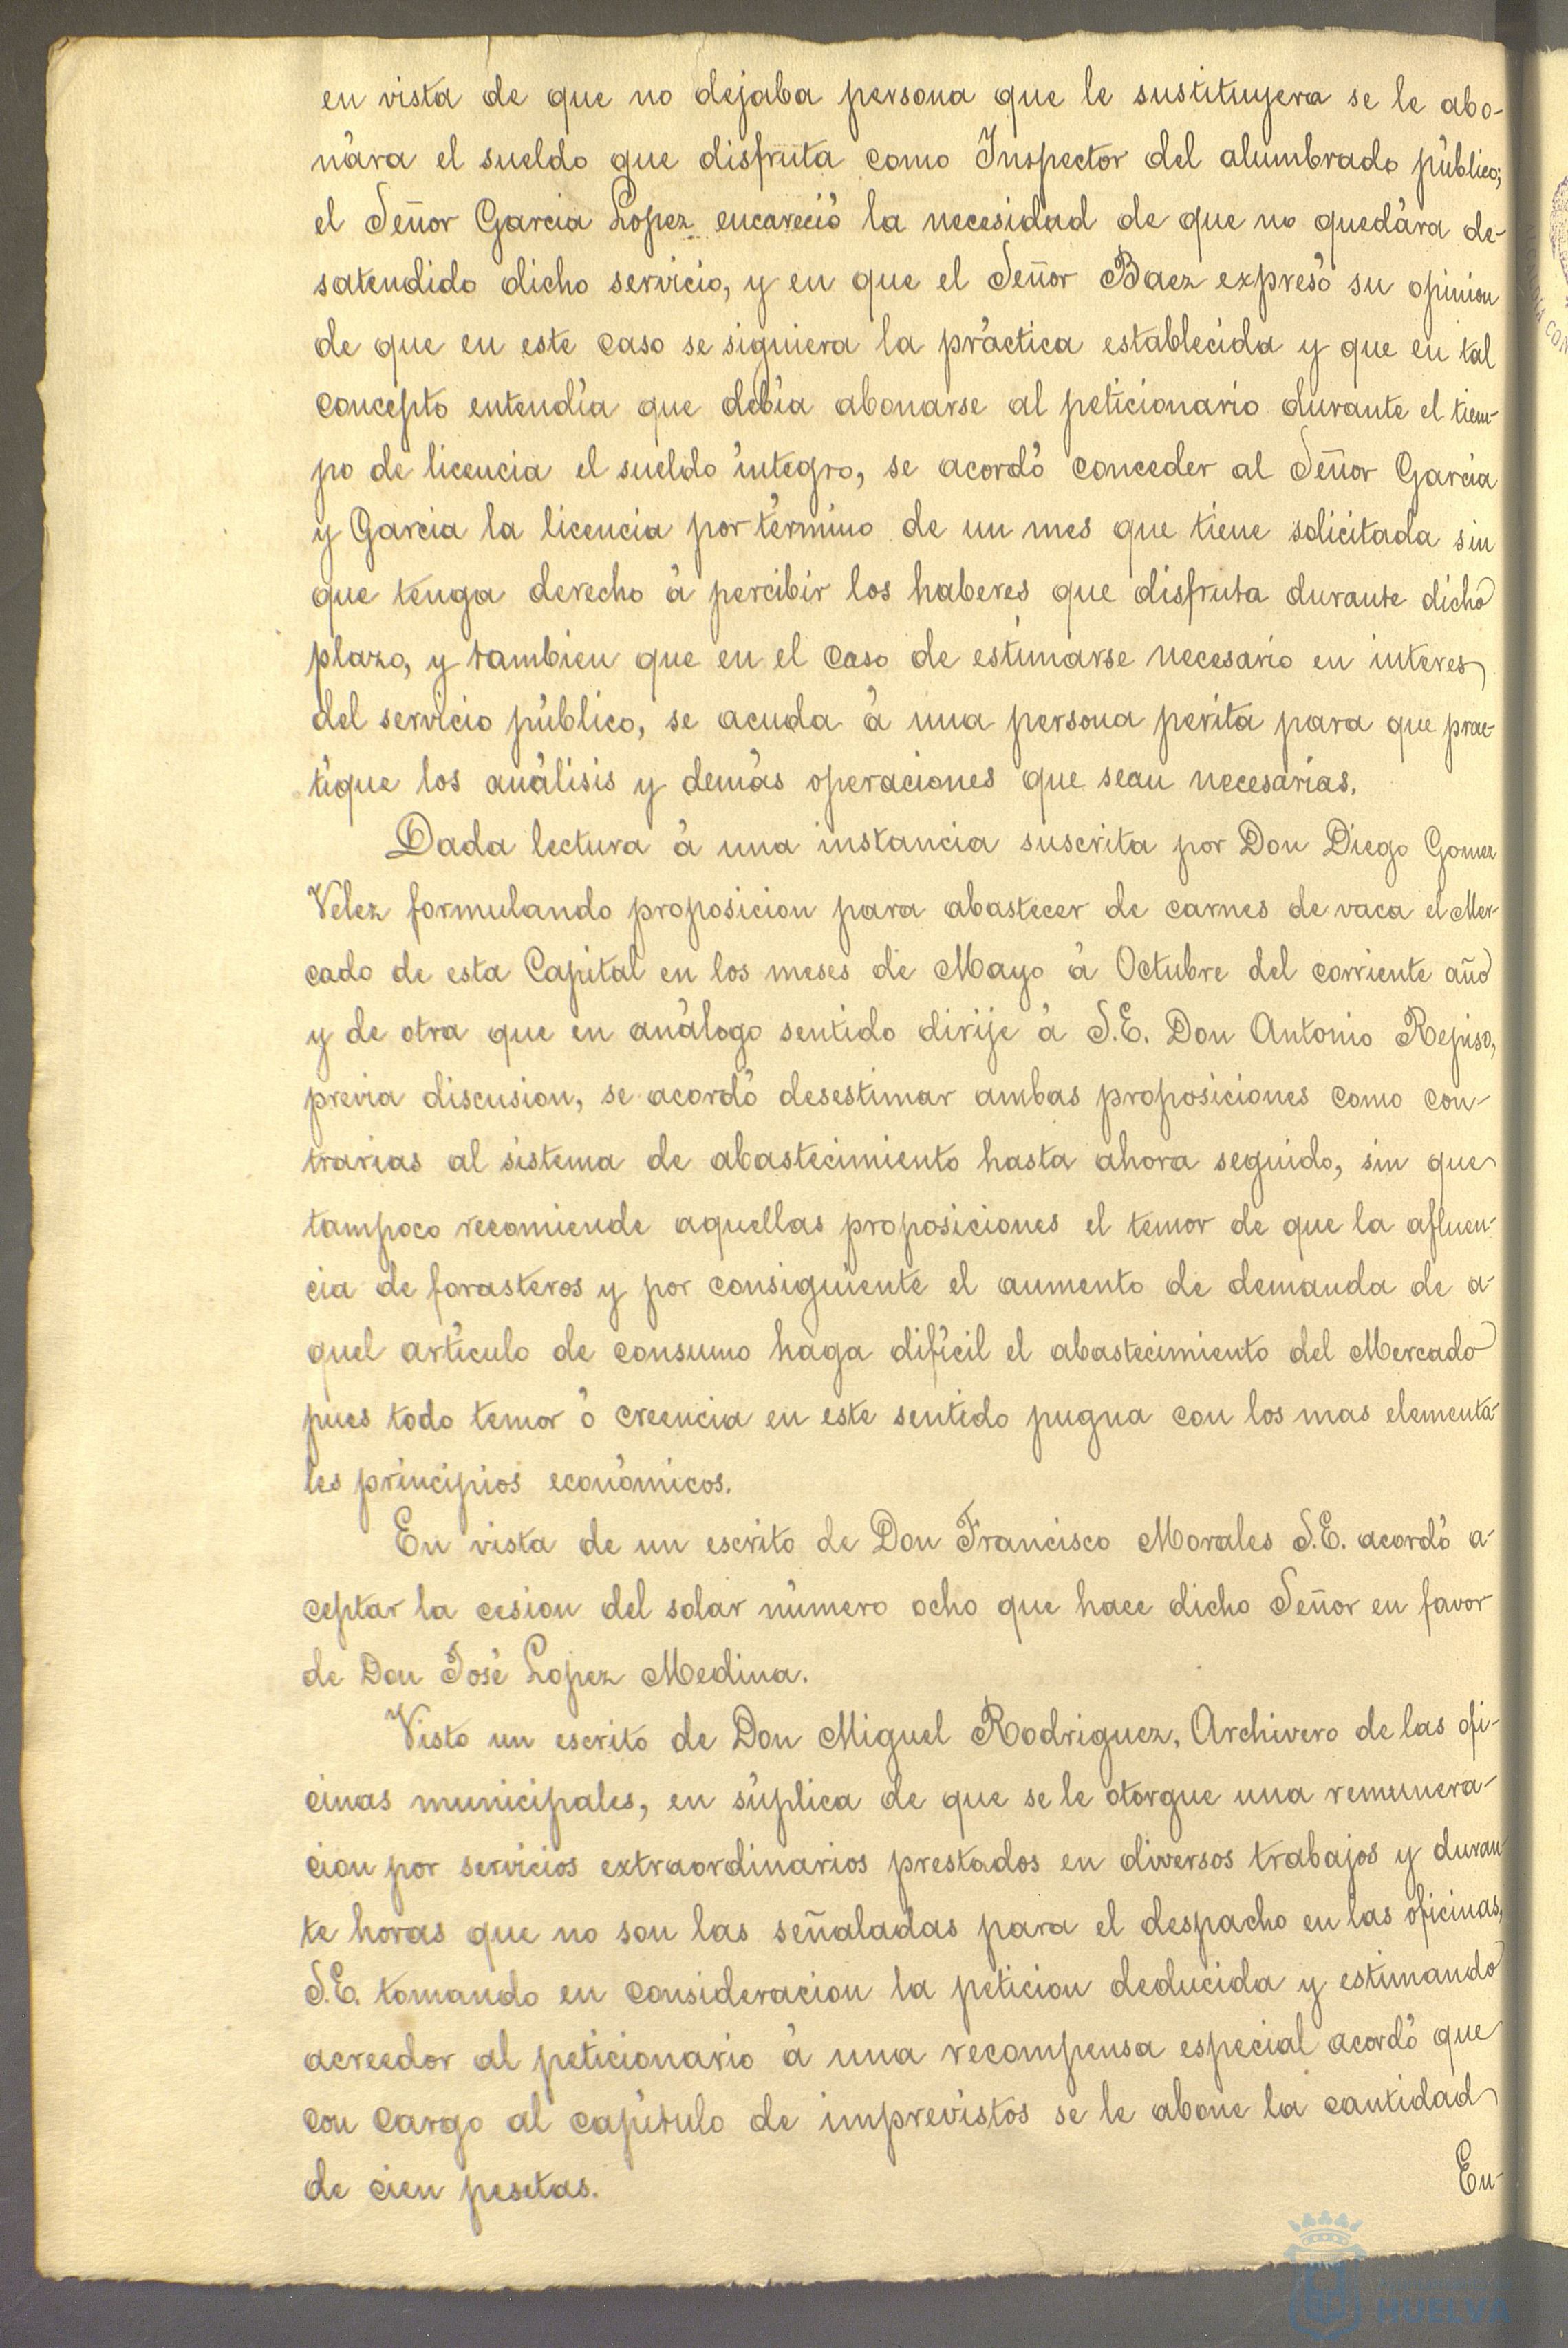 en vista de que no dejaba persona que le sustituyera se le abo-
nára el sueldo que disfruta como Inspector del alumbrado público;
el Señor Garcia Lopez encareció la necesidad de que no quedára de-
satendido dicho servicio, y en que el Señor Baez expresó su opinion
de que en este caso se siguiera la práctica establecida y que en tal
concepto entendía que debía abonarse al peticionario durante el tiem-
po de licencia el sueldo íntegro, se acordó conceder al Señor Garcia
y Garcia la licencia por término de un mes que tiene solicitada sin
que tenga derecho á percibir los haberes que disfruta durante dicho
plazo, y tambien que en el caso de estimarse necesario en interes
del servicio público, se acuda á una persona perita para que prac-
tique los análisis y demás operaciones que sean necesarias.
Dada lectura á una instancia suscrita por Don Diego Gomez
Velez formulando proposicion para abastecer de carnes de vaca el Mer-
cado de esta Capital en los meses de Mayo á Octubre del corriente año
y de otra que en análogo sentido dirije á S.E. Don Antonio Repiso,
previa discusion, se acordó desestimar ambas proposiciones como con-
trarias al sistema de abastecimiento hasta ahora seguido, sin que
tampoco recomiende aquellas proposiciones el temor de que la afluen-
cia de forasteros y por consiguiente el aumento de demanda de a-
quel artículo de consumo haga difícil el abastecimiento del Mercado
pues todo temor ó creencia en este sentido pugna con los mas elementa-
les principios económicos.
En vista de un escrito de Don Francisco Morales S.E. acordó a-
ceptar la cesion del solar número ocho que hace dicho Señor en favor
de Don José Lopez Medina.
Visto un escrito de Don Miguel Rodriguez, Archivero de las ofi-
cinas municipales, en súplica de que se le otorgue una remunera-
cion por servicios extraordinarios prestados en diversos trabajos y duran-
te horas que no son las señaladas para el despacho en las oficinas,
S.E. tomando en consideracion la peticion deducida y estimando
acreedor al peticionario á una recompensa especial acordó que
con cargo al capítulo de imprevistos se le abone la cantidad
de cien pesetas.
En-
HUELVA